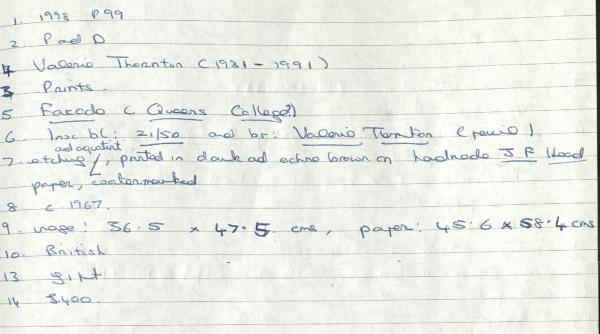 1. 1998 P99
2. P and D
4 Valerie Thornton (1931-1991)
3 Prints.
5 Facade (Queens College?)
6 Insc bl: 21/50 and br: Valerie Thornton (pencil).
and aquatint
7. etching, printed in dark and ochre brown on handmade J F Head
paper, watermarked
8 c. 1967.
9. image: 36.5 x 47.5 cms, paper: 45.6 x 58.4 cms
10. British
13 gift
14 £400.